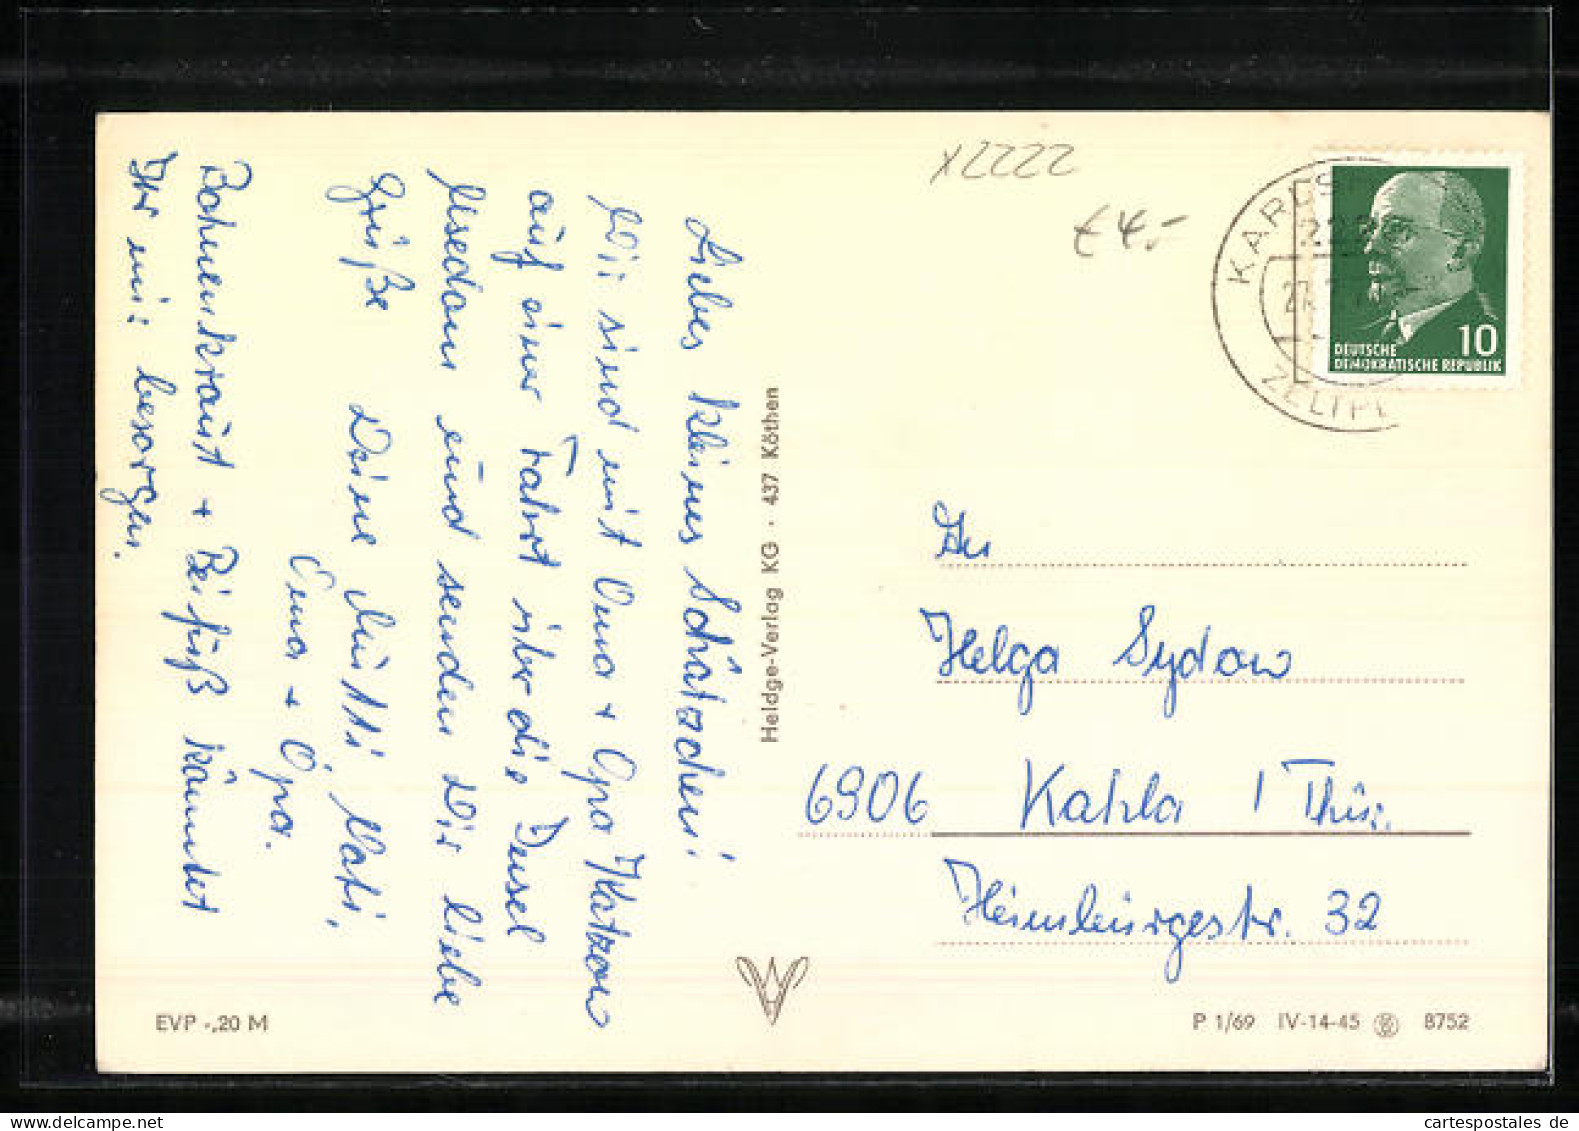 Liebes kleines Schätzchen!
Wir sind mit Oma + Opa Katzow
auf einer Fahrt über die Insel
Usedom und senden Dir liebe
Grüße Deine Mutti, Vati,
Oma + Opa.
Bohnenkraut + Beifuß könntet
Ihr mir besorgen.
Heldge-Verlag KG · 437 Köthen
EVP -,20 M
X2222
€ 4.-
KARLS
222
27.
ZELTPL
10
DEUTSCHE
DEMOKRATISCHE REPUBLIK
An
Helga Sydow
6906 Kahla / Thür.
Heimbürgestr. 32
P 1/69 IV-14-45 8752
www.cartespostales.de